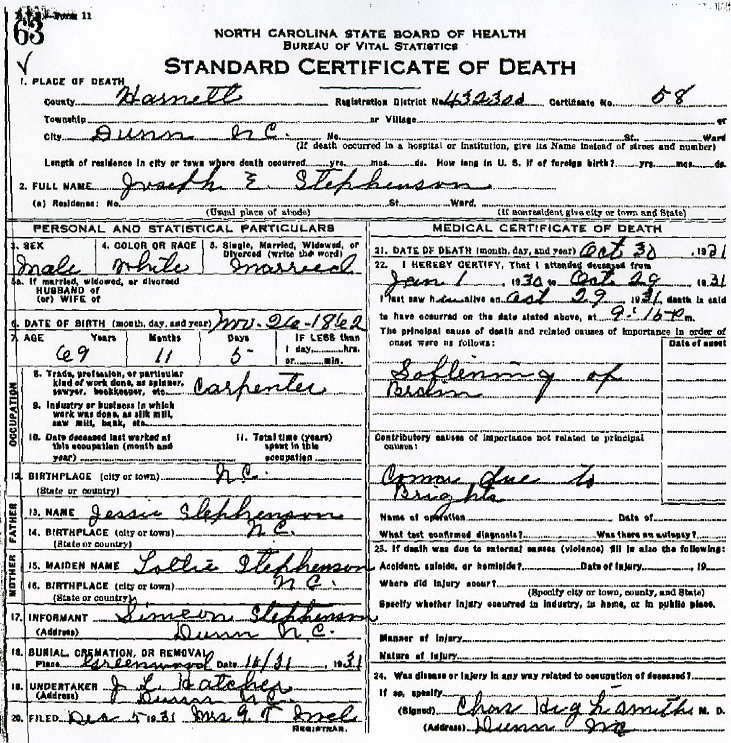 Form 11
63
NORTH CAROLINA STATE BOARD OF HEALTH
BUREAU OF VITAL STATISTICS
STANDARD CERTIFICATE OF DEATH
1. PLACE OF DEATH
County Harnett Registration District No. Certificate No. 58
Township or Village or
City Dunn N.C. No. St. Ward
(If death occurred in a hospital or institution, give its Name instead of street and number)
Length of residence in city or town where death occurred yrs. mos. ds. How long in U. S. if of foreign birth? yrs. mos. ds.
2. FULL NAME Joseph E. Stephenson
(a) Residence: No. St. Ward.
(Usual place of abode) (If nonresident give city or town and State)
PERSONAL AND STATISTICAL PARTICULARS
3. SEX 4. COLOR OR RACE 5. Single, Married, Widowed, or Divorced (write the word)
Male White Married
5a. If married, widowed, or divorced
HUSBAND of
(or) WIFE of
6. DATE OF BIRTH (month, day, and year) Nov-26-1862
7. AGE Years Months Days IF LESS than
1 day, hrs.
69 11 5 or min.
OCCUPATION
8. Trade, profession, or particular
kind of work done, as spinner,
sawyer, bookkeeper, etc. Carpenter
9. Industry or business in which
work was done, as silk mill,
saw mill, bank, etc.
10. Date deceased last worked at
this occupation (month and
year)
11. Total time (years)
spent in this
occupation
12. BIRTHPLACE (city or town) N.C.
(State or country)
FATHER
13. NAME Jessie Stephenson
14. BIRTHPLACE (city or town) N.C.
(State or country)
MOTHER
15. MAIDEN NAME Lottie Stephenson
16. BIRTHPLACE (city or town) N.C.
(State or country)
17. INFORMANT Simeon Stephenson
(Address) Dunn N.C.
18. BURIAL, CREMATION, OR REMOVAL
Place Greenwood Date 10/31, 1931
19. UNDERTAKER J. L. Hatcher
(Address) Dunn N.C.
20. FILED Dec 5 1931 Mrs G. T.
REGISTRAR.
MEDICAL CERTIFICATE OF DEATH
21. DATE OF DEATH (month, day, and year) Oct 30, 1931
22. I HEREBY CERTIFY, That I attended deceased from
Jan 1, 1930 to Oct 29, 1931
I last saw him alive on Oct 29, 1931, death is said
to have occurred on the date stated above, at m.
The principal cause of death and related causes of importance in order of
onset were as follows: Date of onset
Softening of
Brain
Contributory causes of importance not related to principal
cause:
Coma due to
Brights
Name of operation Date of
What test confirmed diagnosis? Was there an autopsy?
23. If death was due to external causes (violence) fill in also the following:
Accident, suicide, or homicide? Date of injury 19
Where did injury occur?
(Specify city or town, county, and State)
Specify whether injury occurred in industry, in home, or in public place.
Manner of injury
Nature of injury
24. Was disease or injury in any way related to occupation of deceased?
If so, specify
(Signed) Chas Highsmith M. D.
(Address) Dunn NC